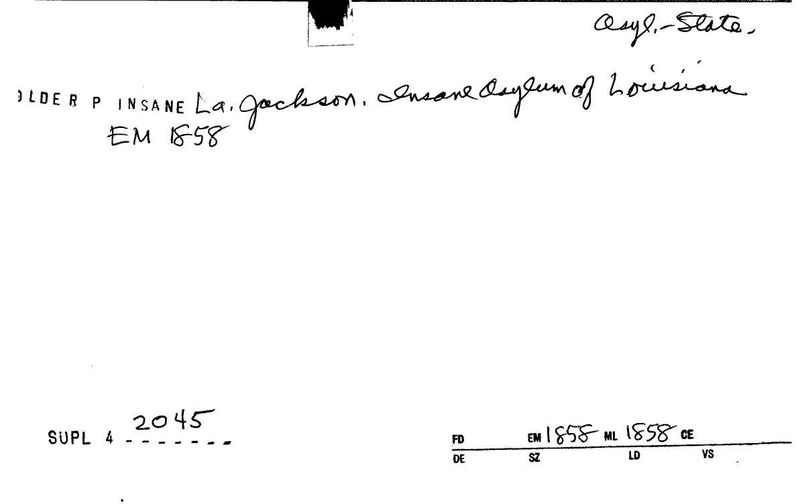 Asyl.-State.
OLDER P INSANE La. Jackson. Insane Asylum of Louisiana
EM 1858
2045
SUPL 4 - - - - - - -
FD EM 1858 ML 1858 CE
DE SZ LD VS